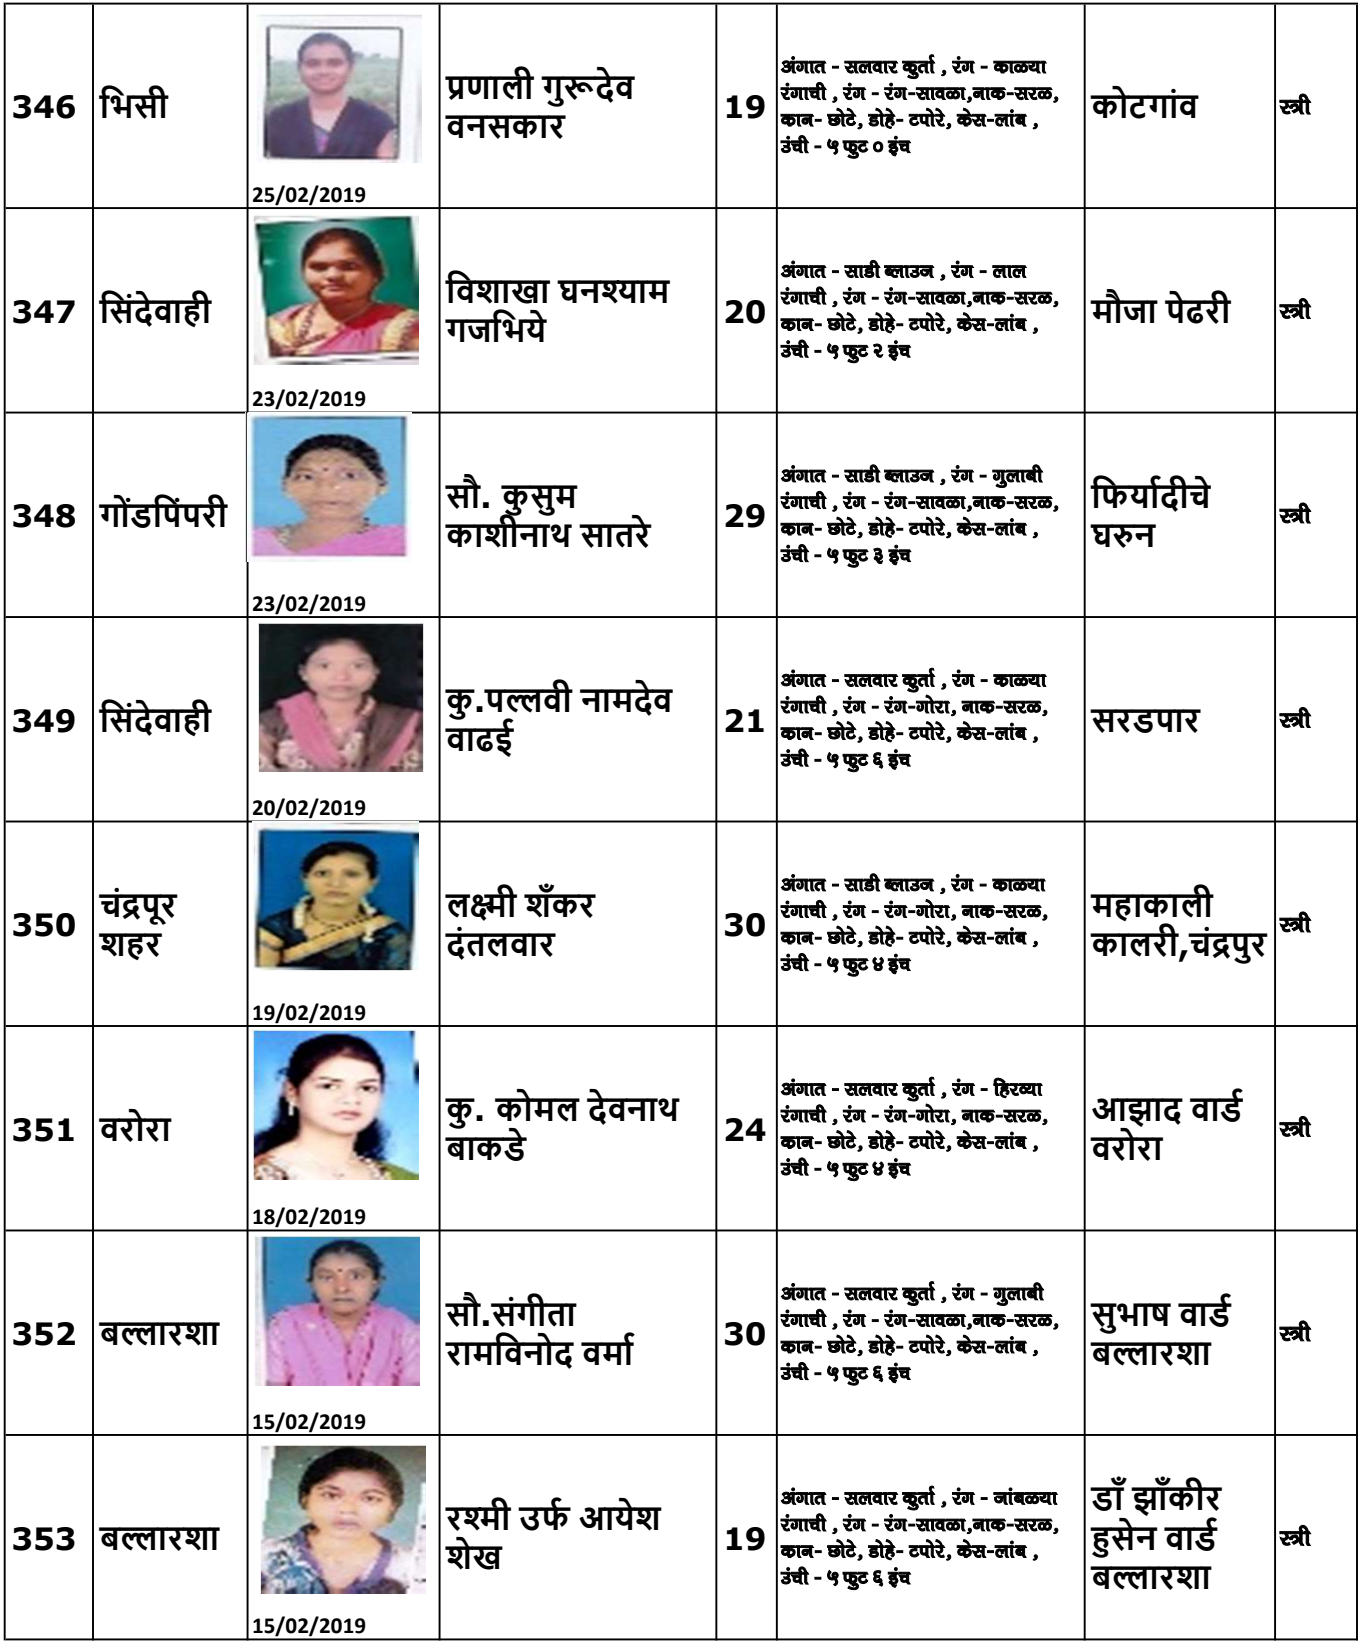 346
भिसी
25/02/2019
प्रणाली गुरूदेव
वनसकार
19
अंगात - सलवार कुर्ता , रंग - काळया
रंगाची , रंग - रंग-सावळा,नाक-सरळ,
कान- छोटे, डोहे- टपोरे, केस-लांब ,
उंची - ५ फुट ० इंच
कोटगांव
स्त्री
347
सिंदेवाही
23/02/2019
विशाखा घनश्याम
गजभिये
20
अंगात - साडी ब्लाउज , रंग - लाल
रंगाची , रंग - रंग-सावळा,नाक-सरळ,
कान- छोटे, डोहे- टपोरे, केस-लांब ,
उंची - ५ फुट २ इंच
मौजा पेढरी
स्त्री
348
गोंडपिंपरी
23/02/2019
सौ. कुसुम
काशीनाथ सातरे
29
अंगात - साडी ब्लाउज , रंग - गुलाबी
रंगाची , रंग - रंग-सावळा,नाक-सरळ,
कान- छोटे, डोहे- टपोरे, केस-लांब ,
उंची - ५ फुट ३ इंच
फिर्यादीचे
घरुन
स्त्री
349
सिंदेवाही
20/02/2019
कु.पल्लवी नामदेव
वाढई
21
अंगात - सलवार कुर्ता , रंग - काळया
रंगाची , रंग - रंग-गोरा, नाक-सरळ,
कान- छोटे, डोहे- टपोरे, केस-लांब ,
उंची - ५ फुट ६ इंच
सरडपार
स्त्री
350
चंद्रपूर
शहर
19/02/2019
लक्ष्मी शँकर
दंतलवार
30
अंगात - साडी ब्लाउज , रंग - काळया
रंगाची , रंग - रंग-गोरा, नाक-सरळ,
कान- छोटे, डोहे- टपोरे, केस-लांब ,
उंची - ५ फुट ४ इंच
महाकाली
कालरी,चंद्रपुर
स्त्री
351
वरोरा
18/02/2019
कु. कोमल देवनाथ
बाकडे
24
अंगात - सलवार कुर्ता , रंग - हिरव्या
रंगाची , रंग - रंग-गोरा, नाक-सरळ,
कान- छोटे, डोहे- टपोरे, केस-लांब ,
उंची - ५ फुट ४ इंच
आझाद वार्ड
वरोरा
स्त्री
352
बल्लारशा
15/02/2019
सौ.संगीता
रामविनोद वर्मा
30
अंगात - सलवार कुर्ता , रंग - गुलाबी
रंगाची , रंग - रंग-सावळा,नाक-सरळ,
कान- छोटे, डोहे- टपोरे, केस-लांब ,
उंची - ५ फुट ६ इंच
सुभाष वार्ड
बल्लारशा
स्त्री
353
बल्लारशा
15/02/2019
रश्मी उर्फ आयेश
शेख
19
अंगात - सलवार कुर्ता , रंग - जांबळया
रंगाची , रंग - रंग-सावळा,नाक-सरळ,
कान- छोटे, डोहे- टपोरे, केस-लांब ,
उंची - ५ फुट ६ इंच
डाँ झाँकीर
हुसेन वार्ड
बल्लारशा
स्त्री